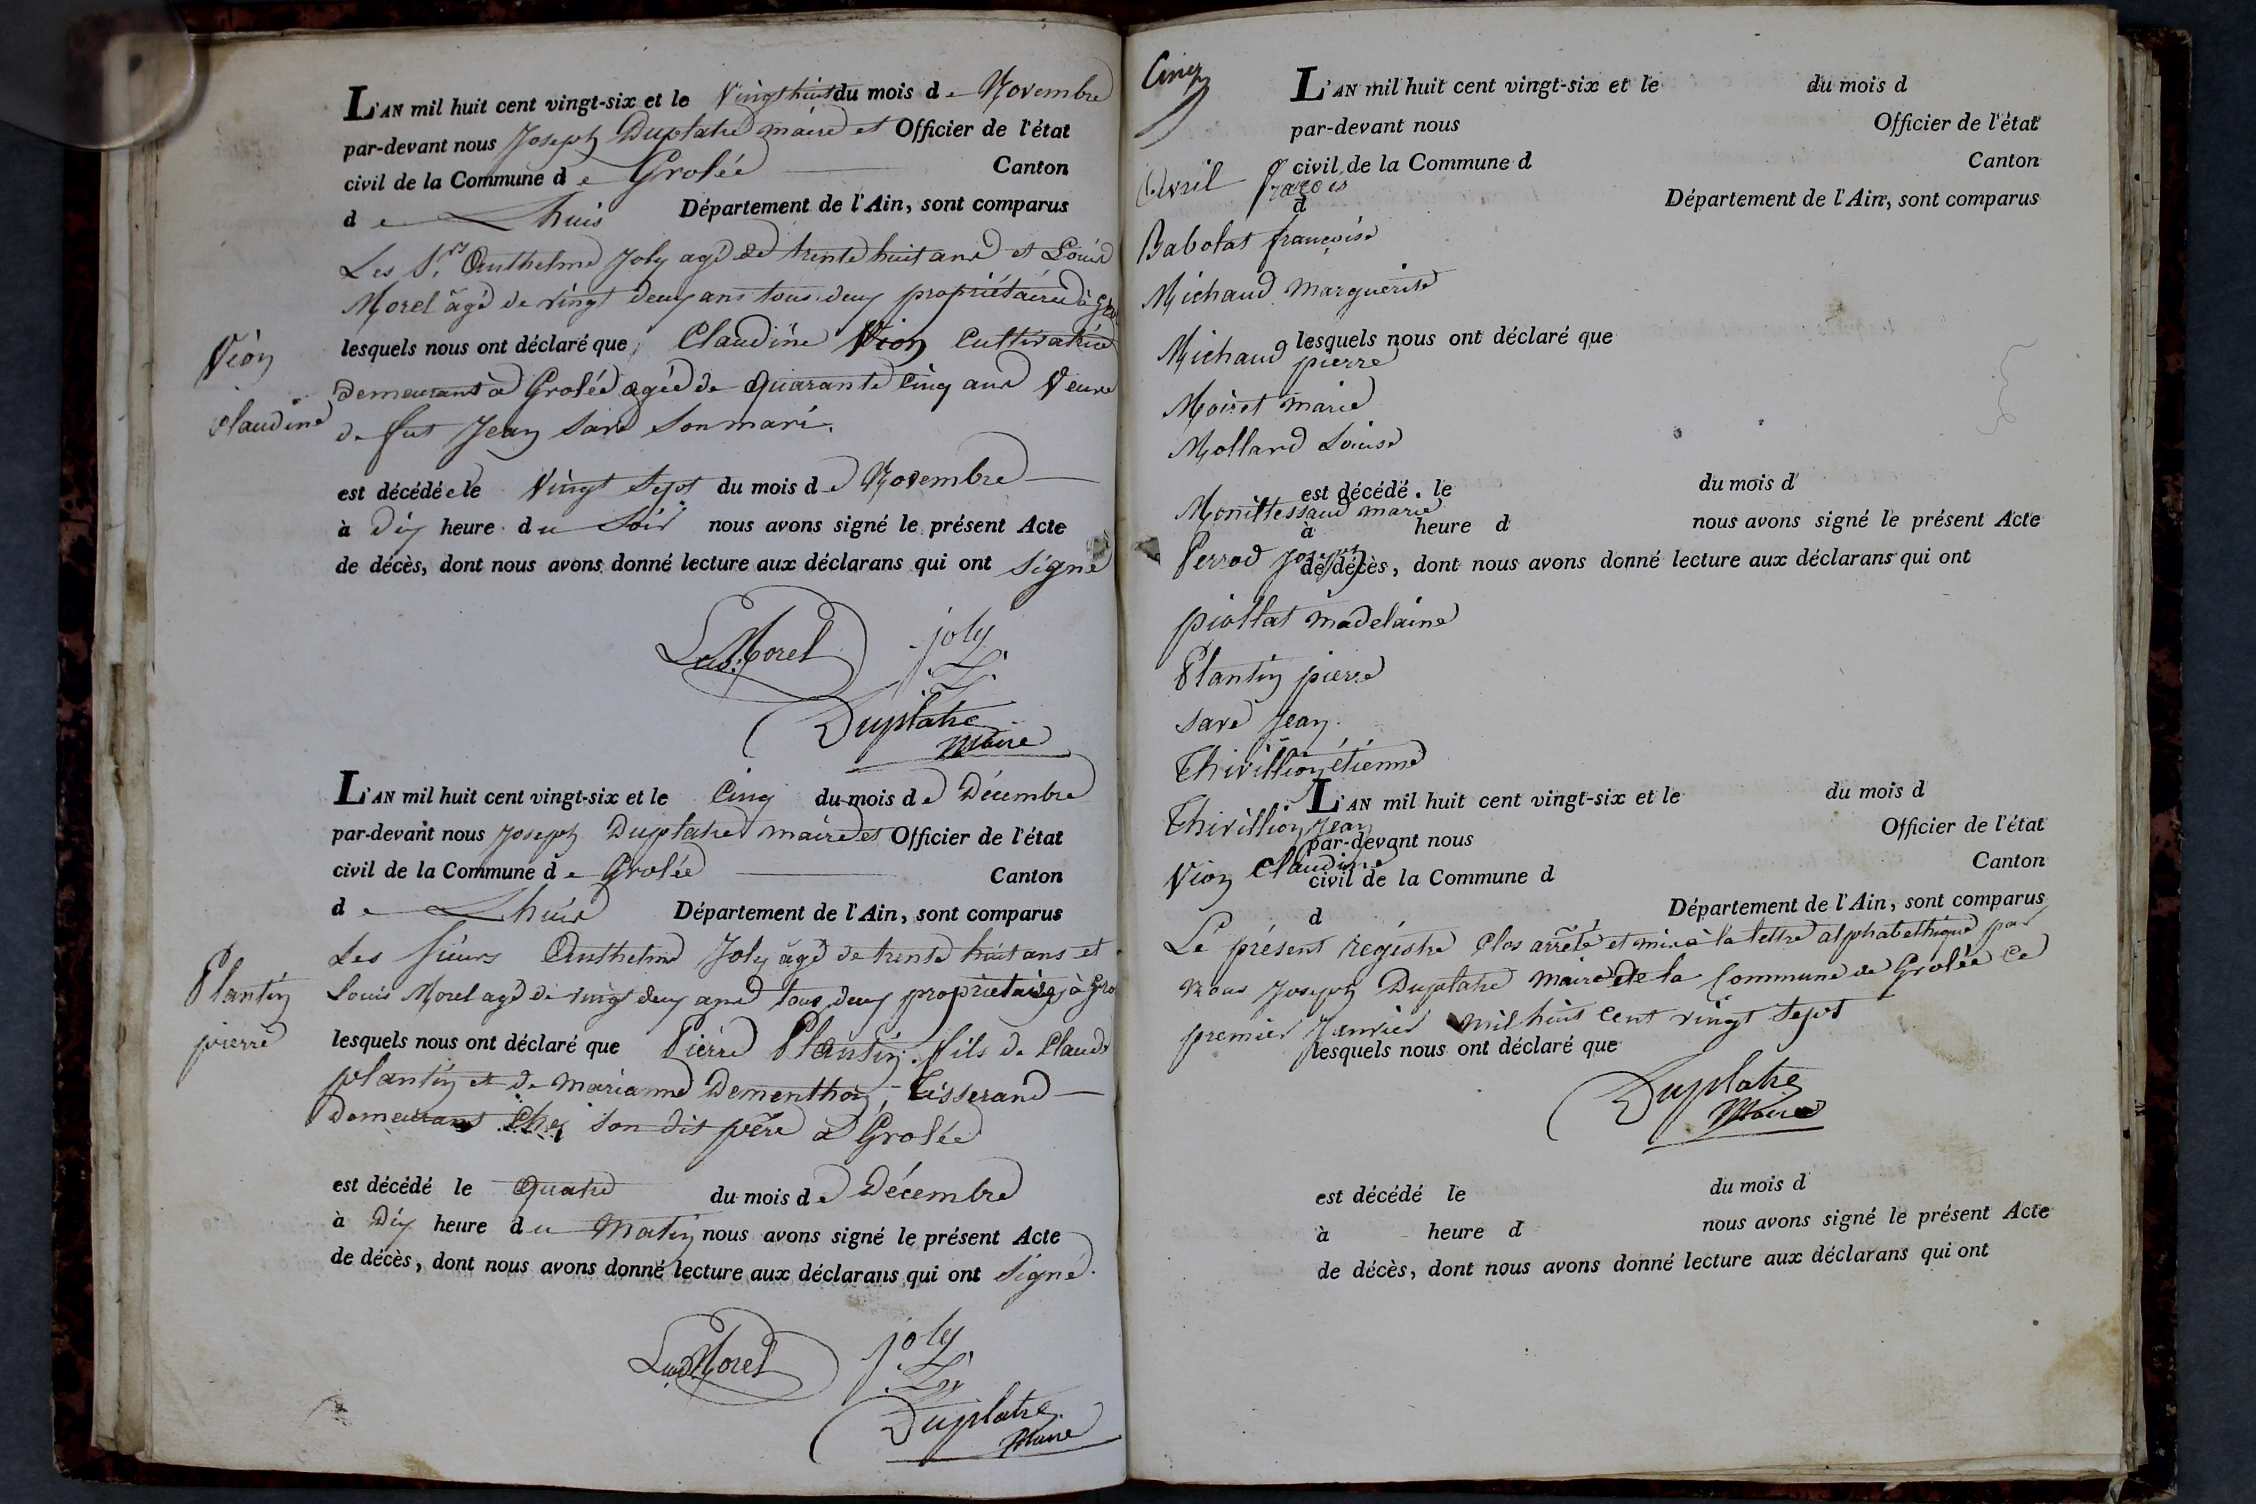 L'AN mil huit cent vingt-six et le Vingt huit du mois de Novembre
par-devant nous Joseph Duplatre maire et Officier de l'état
civil de la Commune de Grolée Canton
de Lhuis Département de l'Ain, sont comparus
Les Srs Anthelme Joly agé de trente huit ans et Louis
Morel âgé de vingt deux ans tous deux propriétaires à Gro
Vion
lesquels nous ont déclaré que Claudine Vion Cultivatrice
demeurant à Grolée agée de quarante cinq ans Veuve
Claudine
de fut Jean Savé son mari.
est décédée le Vingt Sept du mois de Novembre
à Dix heure du Soir nous avons signé le présent Acte
de décès, dont nous avons donné lecture aux déclarans qui ont Signé
Ls Morel joly
Duplatre
Maire
L'AN mil huit cent vingt-six et le Cinq du mois de Décembre
par-devant nous Joseph Duplatre maire et Officier de l'état
civil de la Commune de Grolée Canton
de Lhuis Département de l'Ain, sont comparus
Les sieurs Anthelme Joly âgé de trente huit ans et
Plantin
Louis Morel agé de vingt deux ans tous deux propriétaires à Gro
pierre
lesquels nous ont déclaré que Pierre Plantin, fils de Claude
plantin et de Marianne Dementhon, Tisserand
Demeurant Chez son dit père à Grolée
est décédé le Quatre du mois de Décembre
à Dix heure du Matin nous avons signé le présent Acte
de décès, dont nous avons donné lecture aux déclarans qui ont Signé.
Morel joly
Duplatre
Maire
Cinq
L'AN mil huit cent vingt-six et le du mois d
par-devant nous Officier de l'état
civil de la Commune d Canton
Avril
d Département de l'Ain, sont comparus
Babolat françoise
Michaud Marguerite
lesquels nous ont déclaré que
Michaud pierre
Moiret Marie
Mollard Louise
est décédé. le du mois d
Monittessaud marie
à heure d nous avons signé le présent Acte
Perrod Joseph
de décès, dont nous avons donné lecture aux déclarans qui ont
piollat madelaine
Plantin pierre
Savé Jean.
Thivillion étienne
L'AN mil huit cent vingt-six et le du mois d
Thivillion Jean Officier de l'état
par-devant nous
Vion Claudine
civil de la Commune d Canton
d Département de l'Ain, sont comparus
Le présent registre Clos arrêté et mis à la lettre alphabethique par
Nous Joseph Duplatre Maire de la Commune de Grolée Ce
premier Janvier Mil huit Cent vingt Sept
lesquels nous ont déclaré que
Duplatre
Maire
est décédé le du mois d
à heure d nous avons signé le présent Acte
de décès, dont nous avons donné lecture aux déclarans qui ont